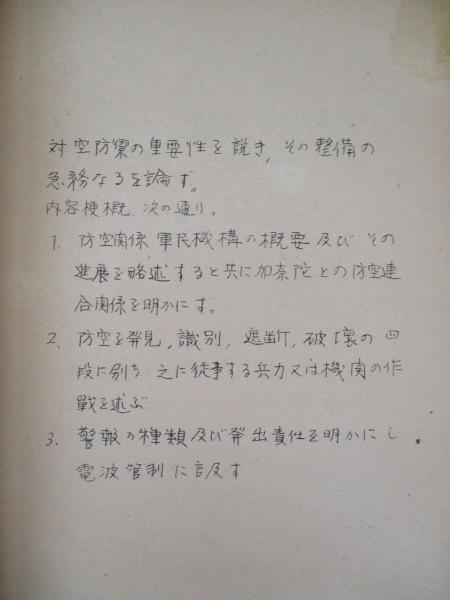 対空防禦の重要性を説き、その整備の
急務なるを論ず。
内容梗概 次の通り。
1. 防空関係軍民機構の概要及びその
進展を略述すると共に加奈陀との防空連
合関係を明かにす。
2. 防空を発見,識別,遮断,破壊の四
段に別ち 之に従事する兵力又は機関の作
戰を述ぶ
3. 警報の種類及び発出責任を明かにし
電波管制に言及す